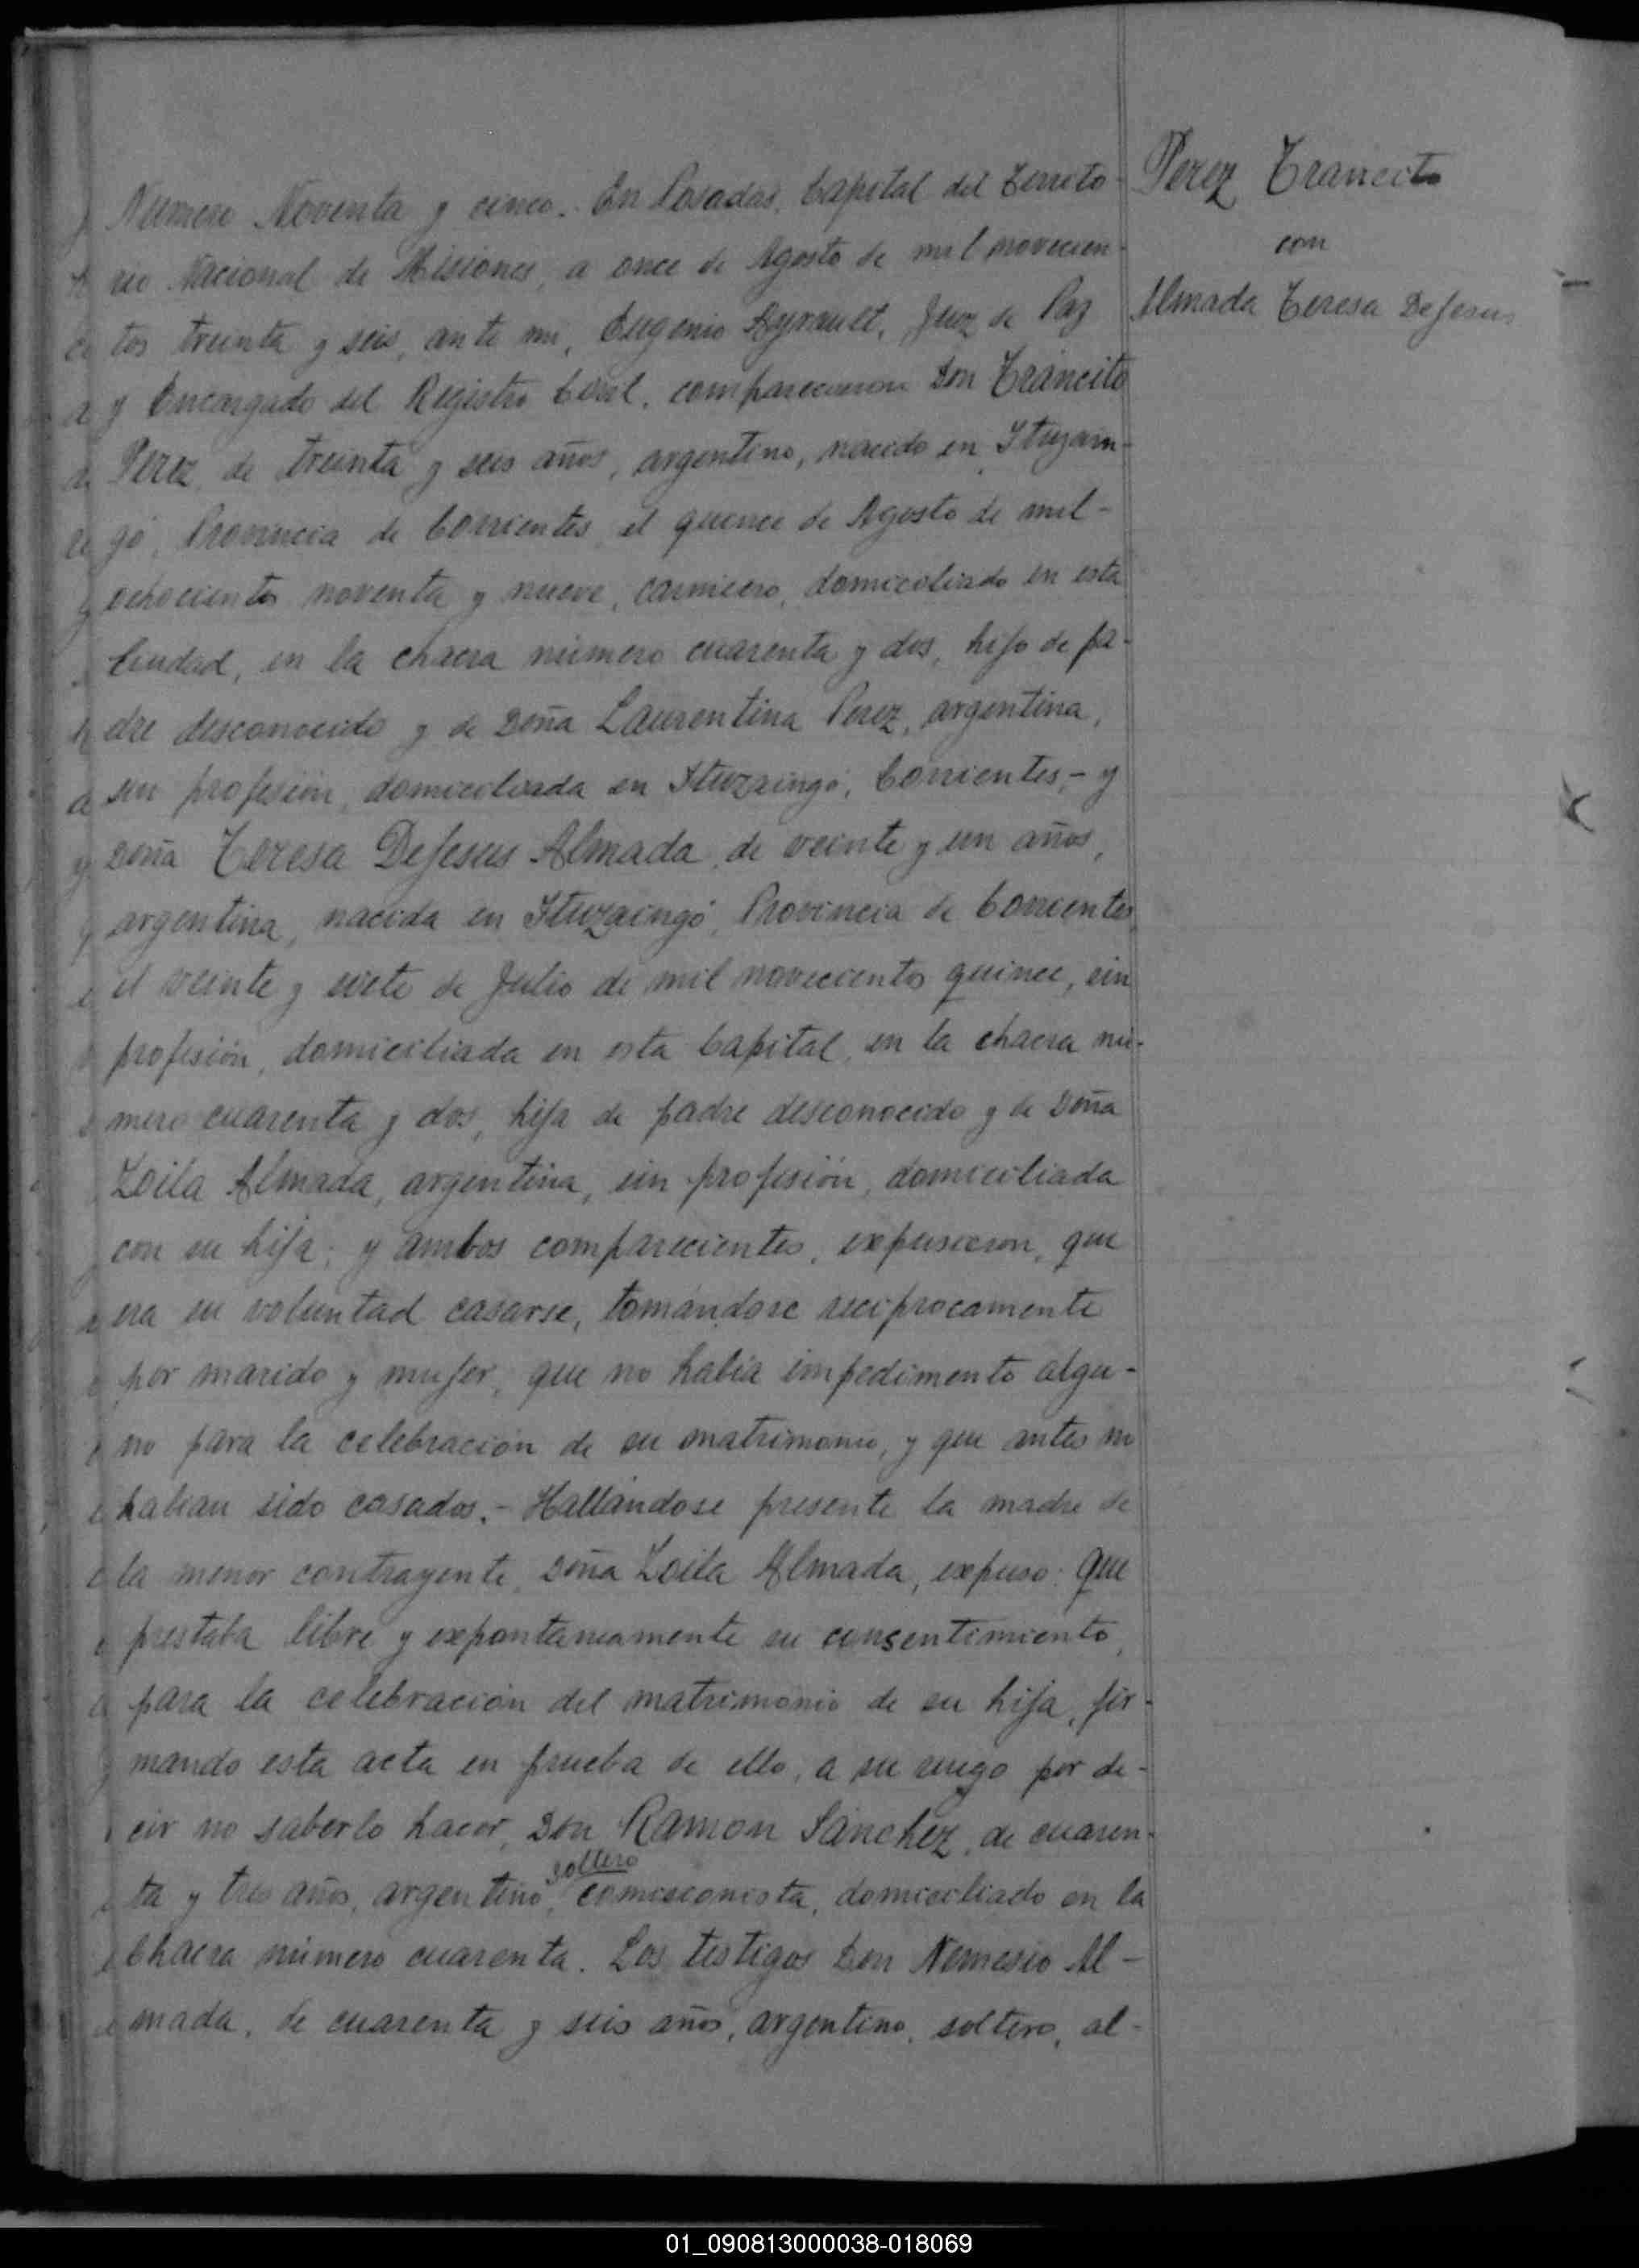 Perez Tráncito
con
Almada Teresa DeJesus
Número Noventa y cinco.- En Posadas, Capital del Territo-
rio Nacional de Misiones, a once de Agosto de mil novecien-
tos treinta y seis, ante mi, Eugenio Ayrault, Juez de Paz
y Encargado del Registro Civil, comparecieron Don Tráncito
Perez, de treinta y seis años, argentino, nacido en Ituzain-
gó, Provincia de Corrientes, el quince de Agosto de mil-
ochocientos noventa y nueve, carnicero, domiciliado en esta
Ciudad, en la chacra número cuarenta y dos, hijo de pa-
dre desconocido y de Doña Laurentina Perez, argentina,
sin profesión, domiciliada en Ituzaingó, Corrientes,- y
Doña Teresa DeJesus Almada, de veinte y un años,
argentina, nacida en Ituzaingó, Provincia de Corrientes
el veinte y siete de Julio de mil novecientos quince, sin
profesión, domiciliada en esta Capital, en la chacra nú-
mero cuarenta y dos, hija de padre desconocido y de Doña
Zoila Almada, argentina, sin profesión, domiciliada
con su hija; y ambos comparecientes, expusieron, que
era su voluntad casarse, tomándose reciprocamente
por marido y mujer, que no habia impedimento algu-
no para la celebración de su matrimonio, y que antes no
habian sido casados.- Hallándose presente la madre de
la menor contrayente, Doña Zoila Almada, expuso: Que
prestaba libre y expontaneamente su consentimiento,
para la celebración del matrimonio de su hija, fir-
mando esta acta en prueba de ello, a su ruego por de-
cir no saberlo hacer, Don Ramon Sánchez, de cuaren-
soltero
ta y tres años, argentino, comisionista, domiciliado en la
Chacra número cuarenta. Los testigos Don Nemesio Al-
mada, de cuarenta y seis años, argentino, soltero, al-
01_090813000038-018069